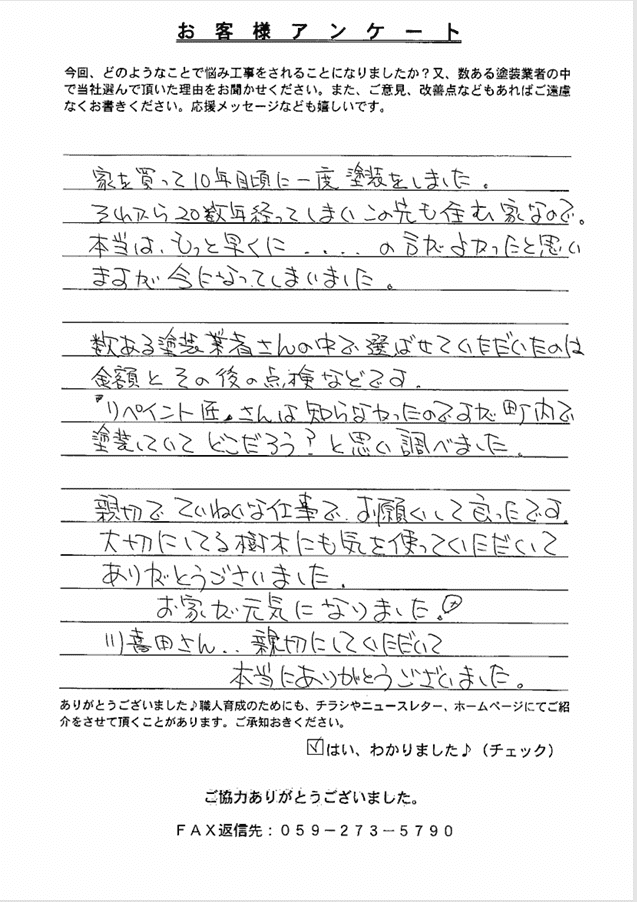 お客様アンケート
今回、どのようなことで悩み工事をされることになりましたか？又、数ある塗装業者の中
で当社選んで頂いた理由をお聞かせください。また、ご意見、改善点などもあればご遠慮
なくお書きください。応援メッセージなども嬉しいです。
家を買って10年目頃に一度塗装をしました。
それから20数年経ってしまいこの先も住む家なので。
本当は、もっと早くに....の方がよかったと思い
ますが今になってしまいました。
数ある塗装業者さんの中で選ばせていただいたのは
金額とその後の点検などです。
『リペイント匠』さんは知らなかったのですが町内で
塗装していてどこだろう？と思い調べました。
親切でていねいな仕事で、お願いして良ったです。
大切にしてる樹木にも気を使っていただいて
ありがとうございました。
お家が元気になりました!
川喜田さん..親切にしていただいて
本当にありがとうございました。
ありがとうございました♪職人育成のためにも、チラシやニュースレター、ホームページにてご紹
介をさせて頂くことがあります。ご承知おきください。
☑はい、わかりました♪（チェック）
ご協力ありがとうございました。
ＦＡＸ返信先：０５９－２７３－５７９０